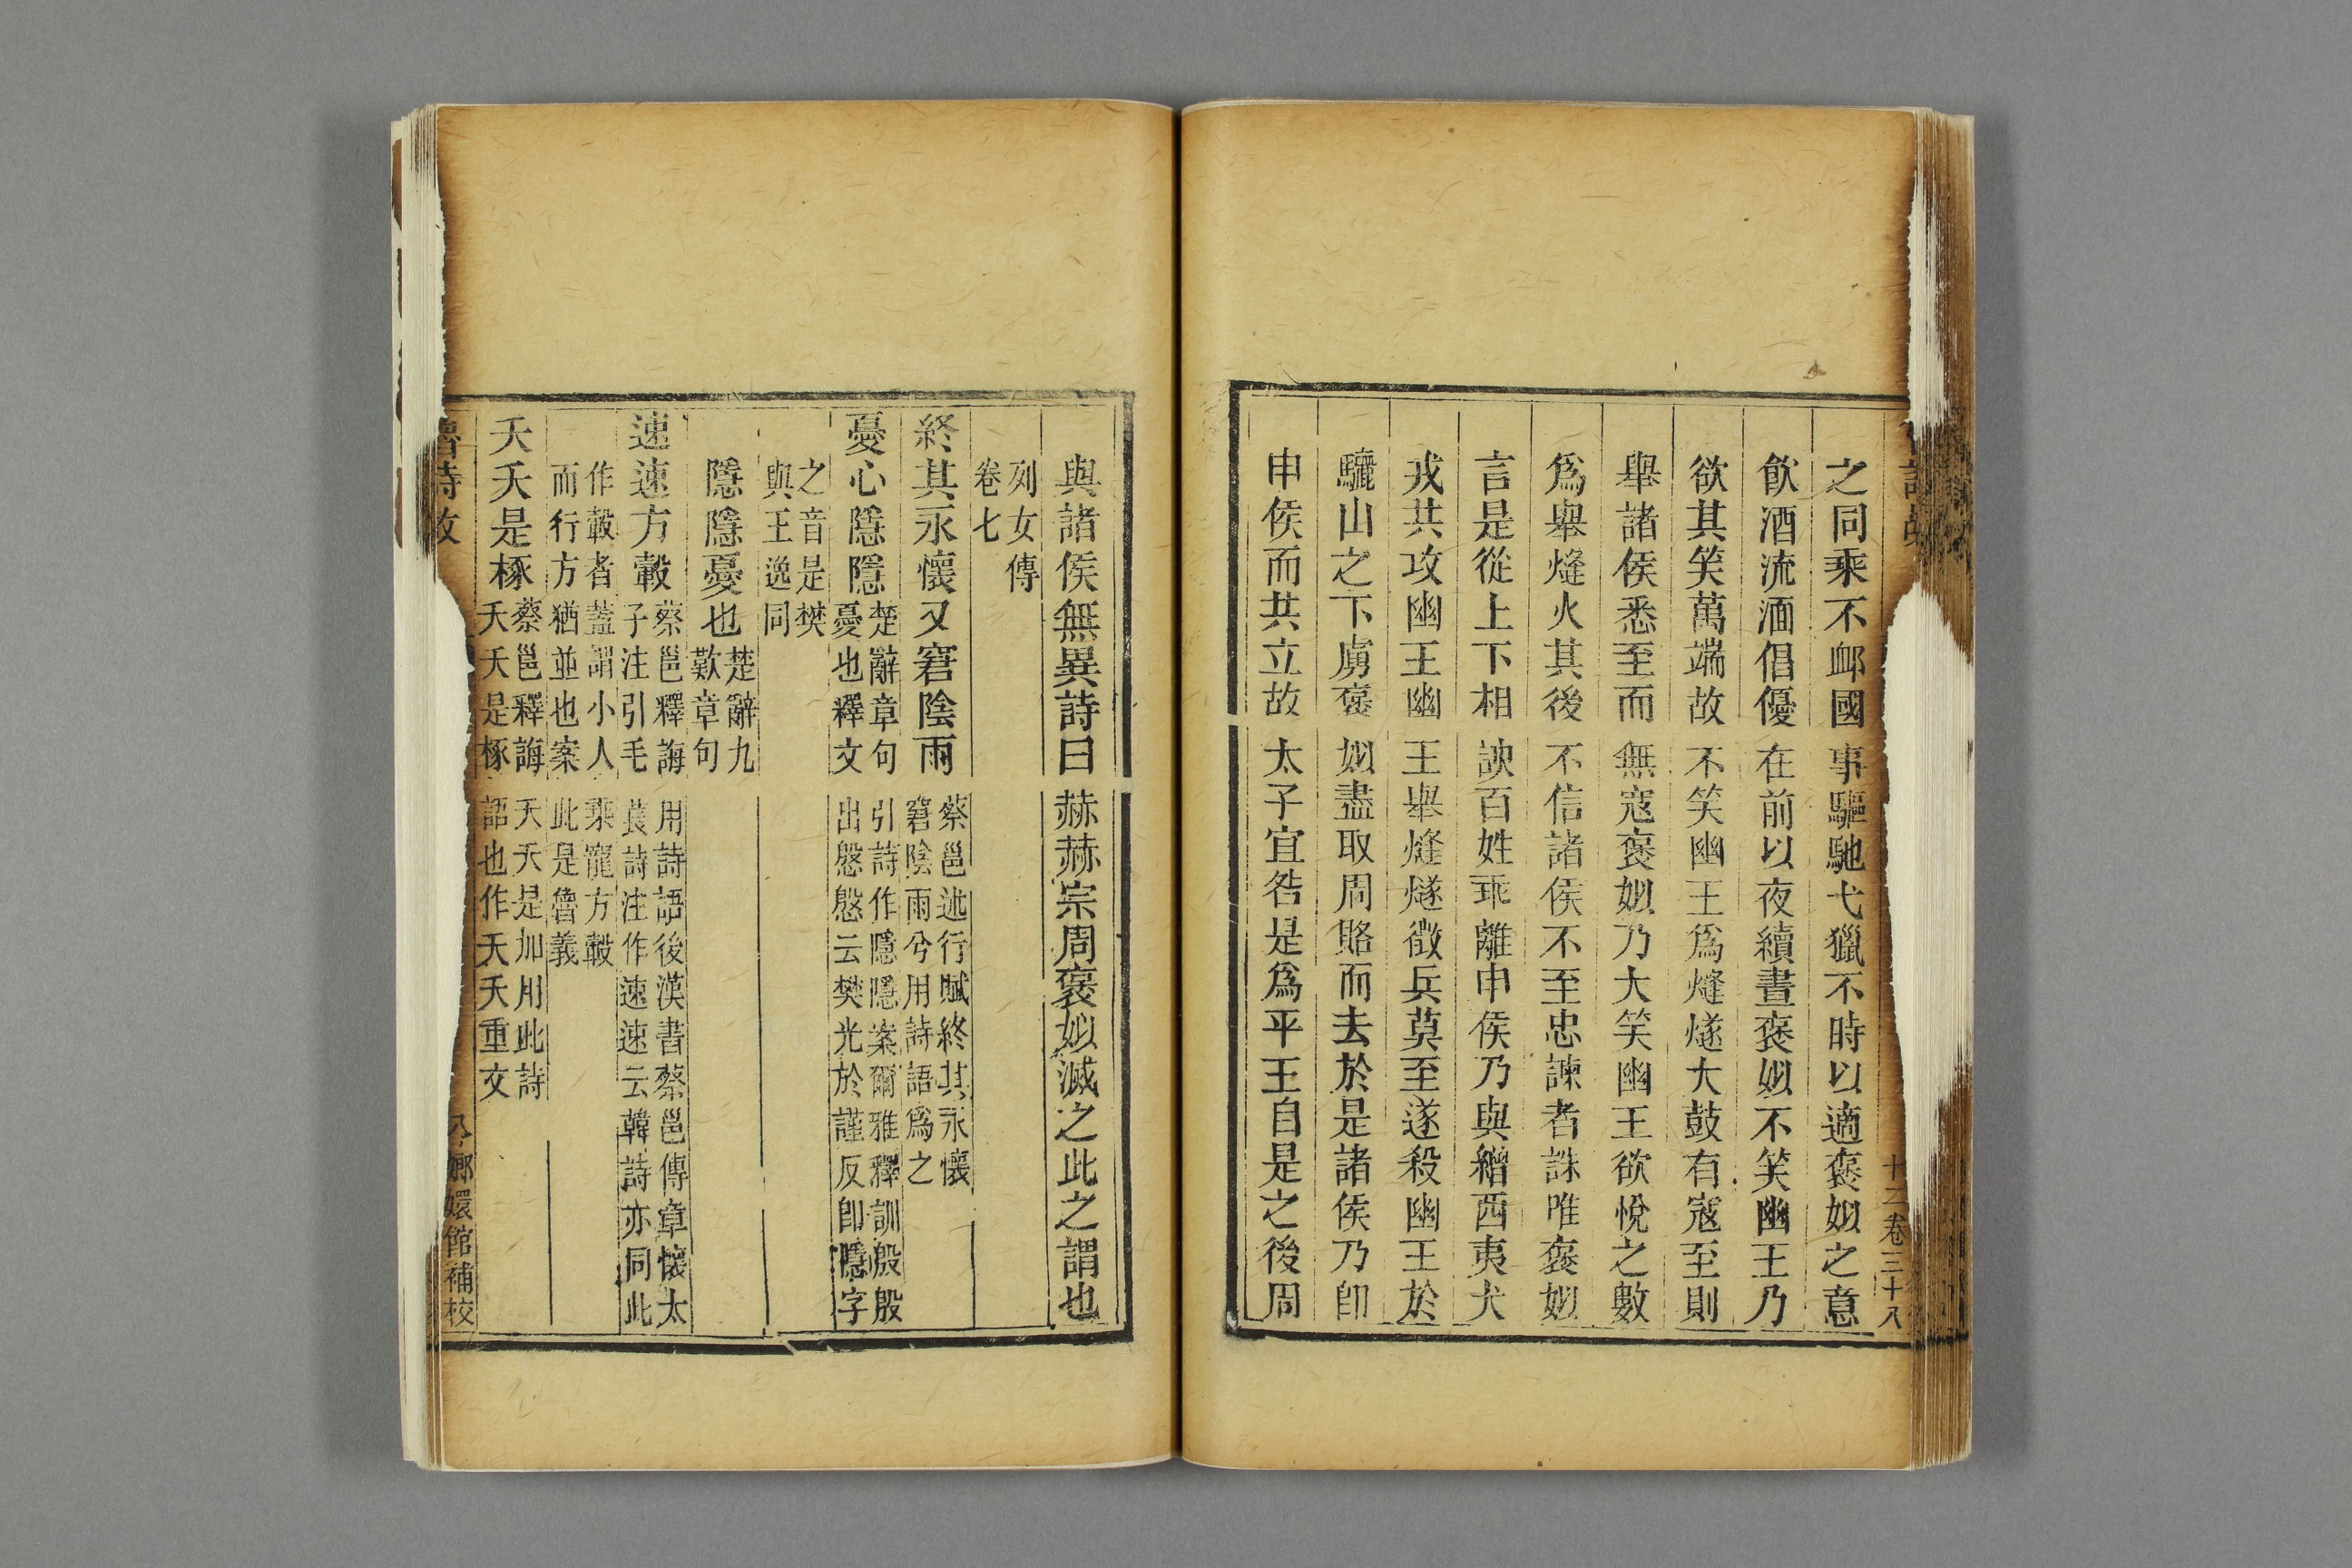 十二卷三十八
之同乘不卹國事驅馳弋獵不時以適褒姒之意
飮酒流湎倡優在前以夜續晝褒姒不笑幽王乃
欲其笑萬端故不笑幽王爲㷭燧大鼓有寇至則
舉諸侯悉至而無寇褒姒乃大笑幽王欲悅之數
爲舉㷭火其後不信諸侯不至忠諫者誅唯褒姒
言是從上下相諛百姓乖離申侯乃與繒西夷犬
戎共攻幽王幽王舉㷭燧徵兵莫至遂殺幽王於
驪山之下虜褒姒盡取周賂而去於是諸侯乃卽
申侯而共立故太子宜咎是爲平王自是之後周
與諸侯無異詩曰赫赫宗周褒姒滅之此之謂也
列女傳
卷七
終其永懷又窘陰雨蔡邕述行賦終其永懷
窘陰雨兮用詩語爲之
憂心隱隱楚辭章句引詩作隱隱案爾雅釋訓殷殷
憂也釋文出慇慇云樊光於謹反卽隱字
之音是樊
與王逸同
隱隱憂也楚辭九
歎章句
速速方轂蔡邕釋誨用詩語後漢書蔡邕傳章懷太
子注引毛萇詩注作速速云韓詩亦同此
作轂者蓋謂小人乘寵方轂
而行方猶並也案此是魯義
夭夭是椓蔡邕釋誨夭夭是加用此詩
夭夭是椓語也作夭夭重文
魯詩故
嫏嬛館補校